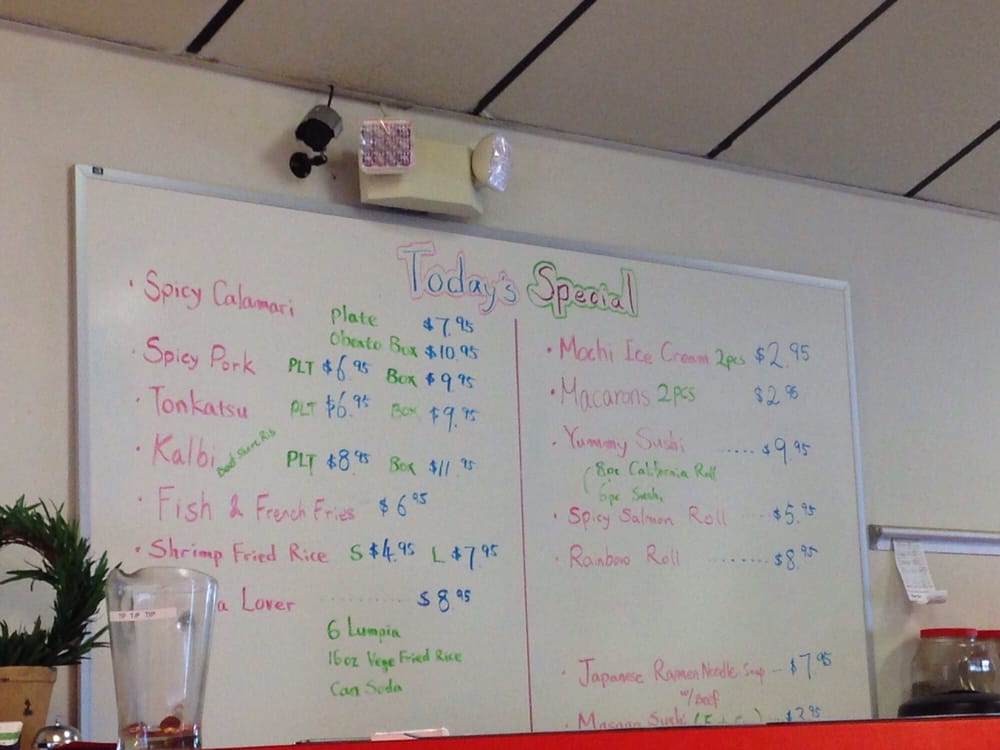 Today's Special
• Spicy Calamari Plate $7.95
Obento Box $10.95
• Spicy Pork PLT $6.95 Box $9.95
• Tonkatsu PLT $6.95 Box $9.95
• Kalbi Beef Short Rib PLT $8.95 Box $11.95
• Fish & French Fries $6.95
• Shrimp Fried Rice S $4.95 L $7.95
a Lover ........ $8.95
6 Lumpia
16oz Vege Fried Rice
Can Soda
• Mochi Ice Cream 2pcs $2.95
• Macarons 2pcs $2.95
• Yummy Sushi ..... $9.95
( 8pc California Roll
6pc Sushi
• Spicy Salmon Roll ... $5.95
• Rainbow Roll ........ $8.95
• Japanese Ramen Noodle Soup -- $7.95
w/Beef
$2.95
TIP TIP TIP